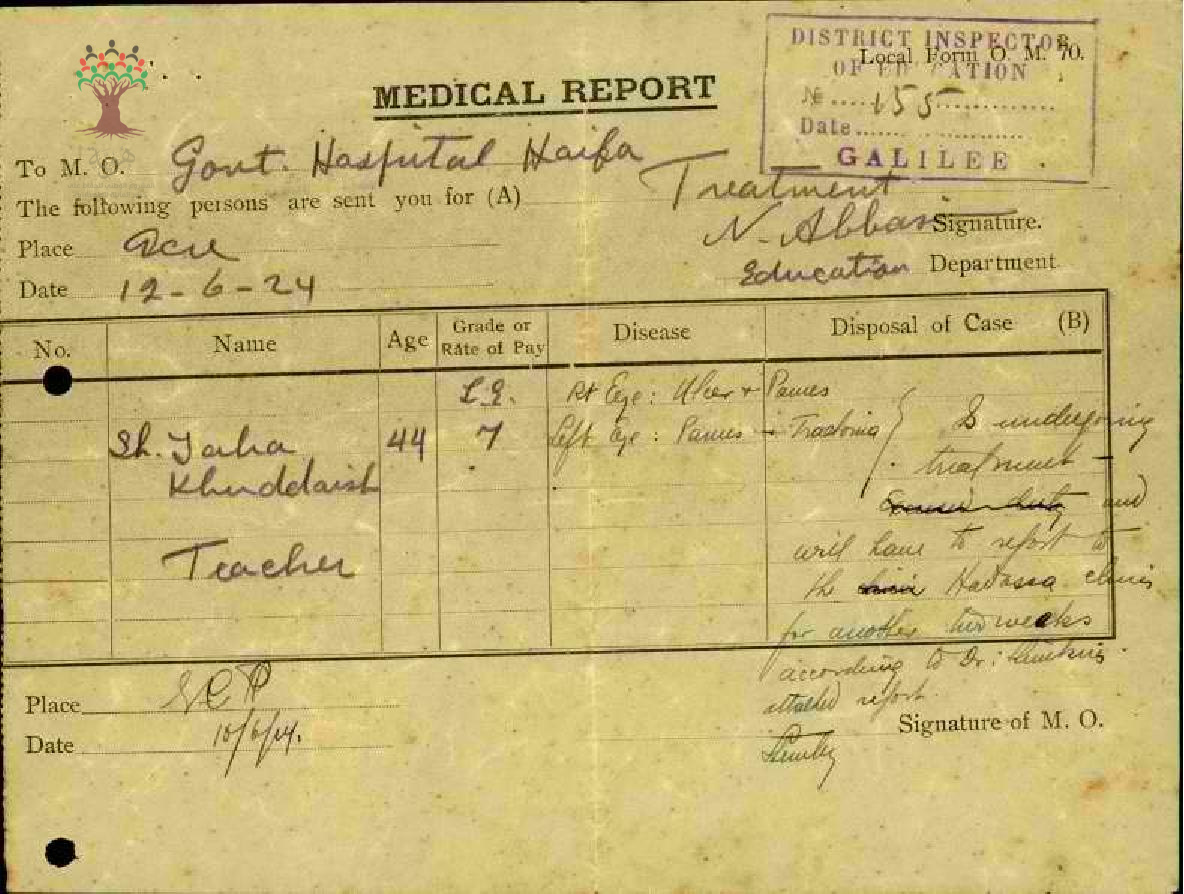 DISTRICT INSPECTOR
Local Form O. M. 70.
OF EDUCATION
№ 155
MEDICAL REPORT
Date
GALILEE
To M. O. Govt. Hospital Haifa
The following persons are sent you for (A) Treatment
Place Acre
N. Abbasi Signature.
Education Department
Date 12-6-24
No. Name Age Grade or Rate of Pay Disease Disposal of Case (B)
L.E. Rt Eye: Ulcer + Pannus
Sh. Taha 44 7 Left Eye: Pannus + Is undergoing
Khuddaish treatment -
and
Teacher will have to report to
the Hadassa clinic
for another two weeks
according to Dr:
attached report.
Place
Signature of M. O.
Date